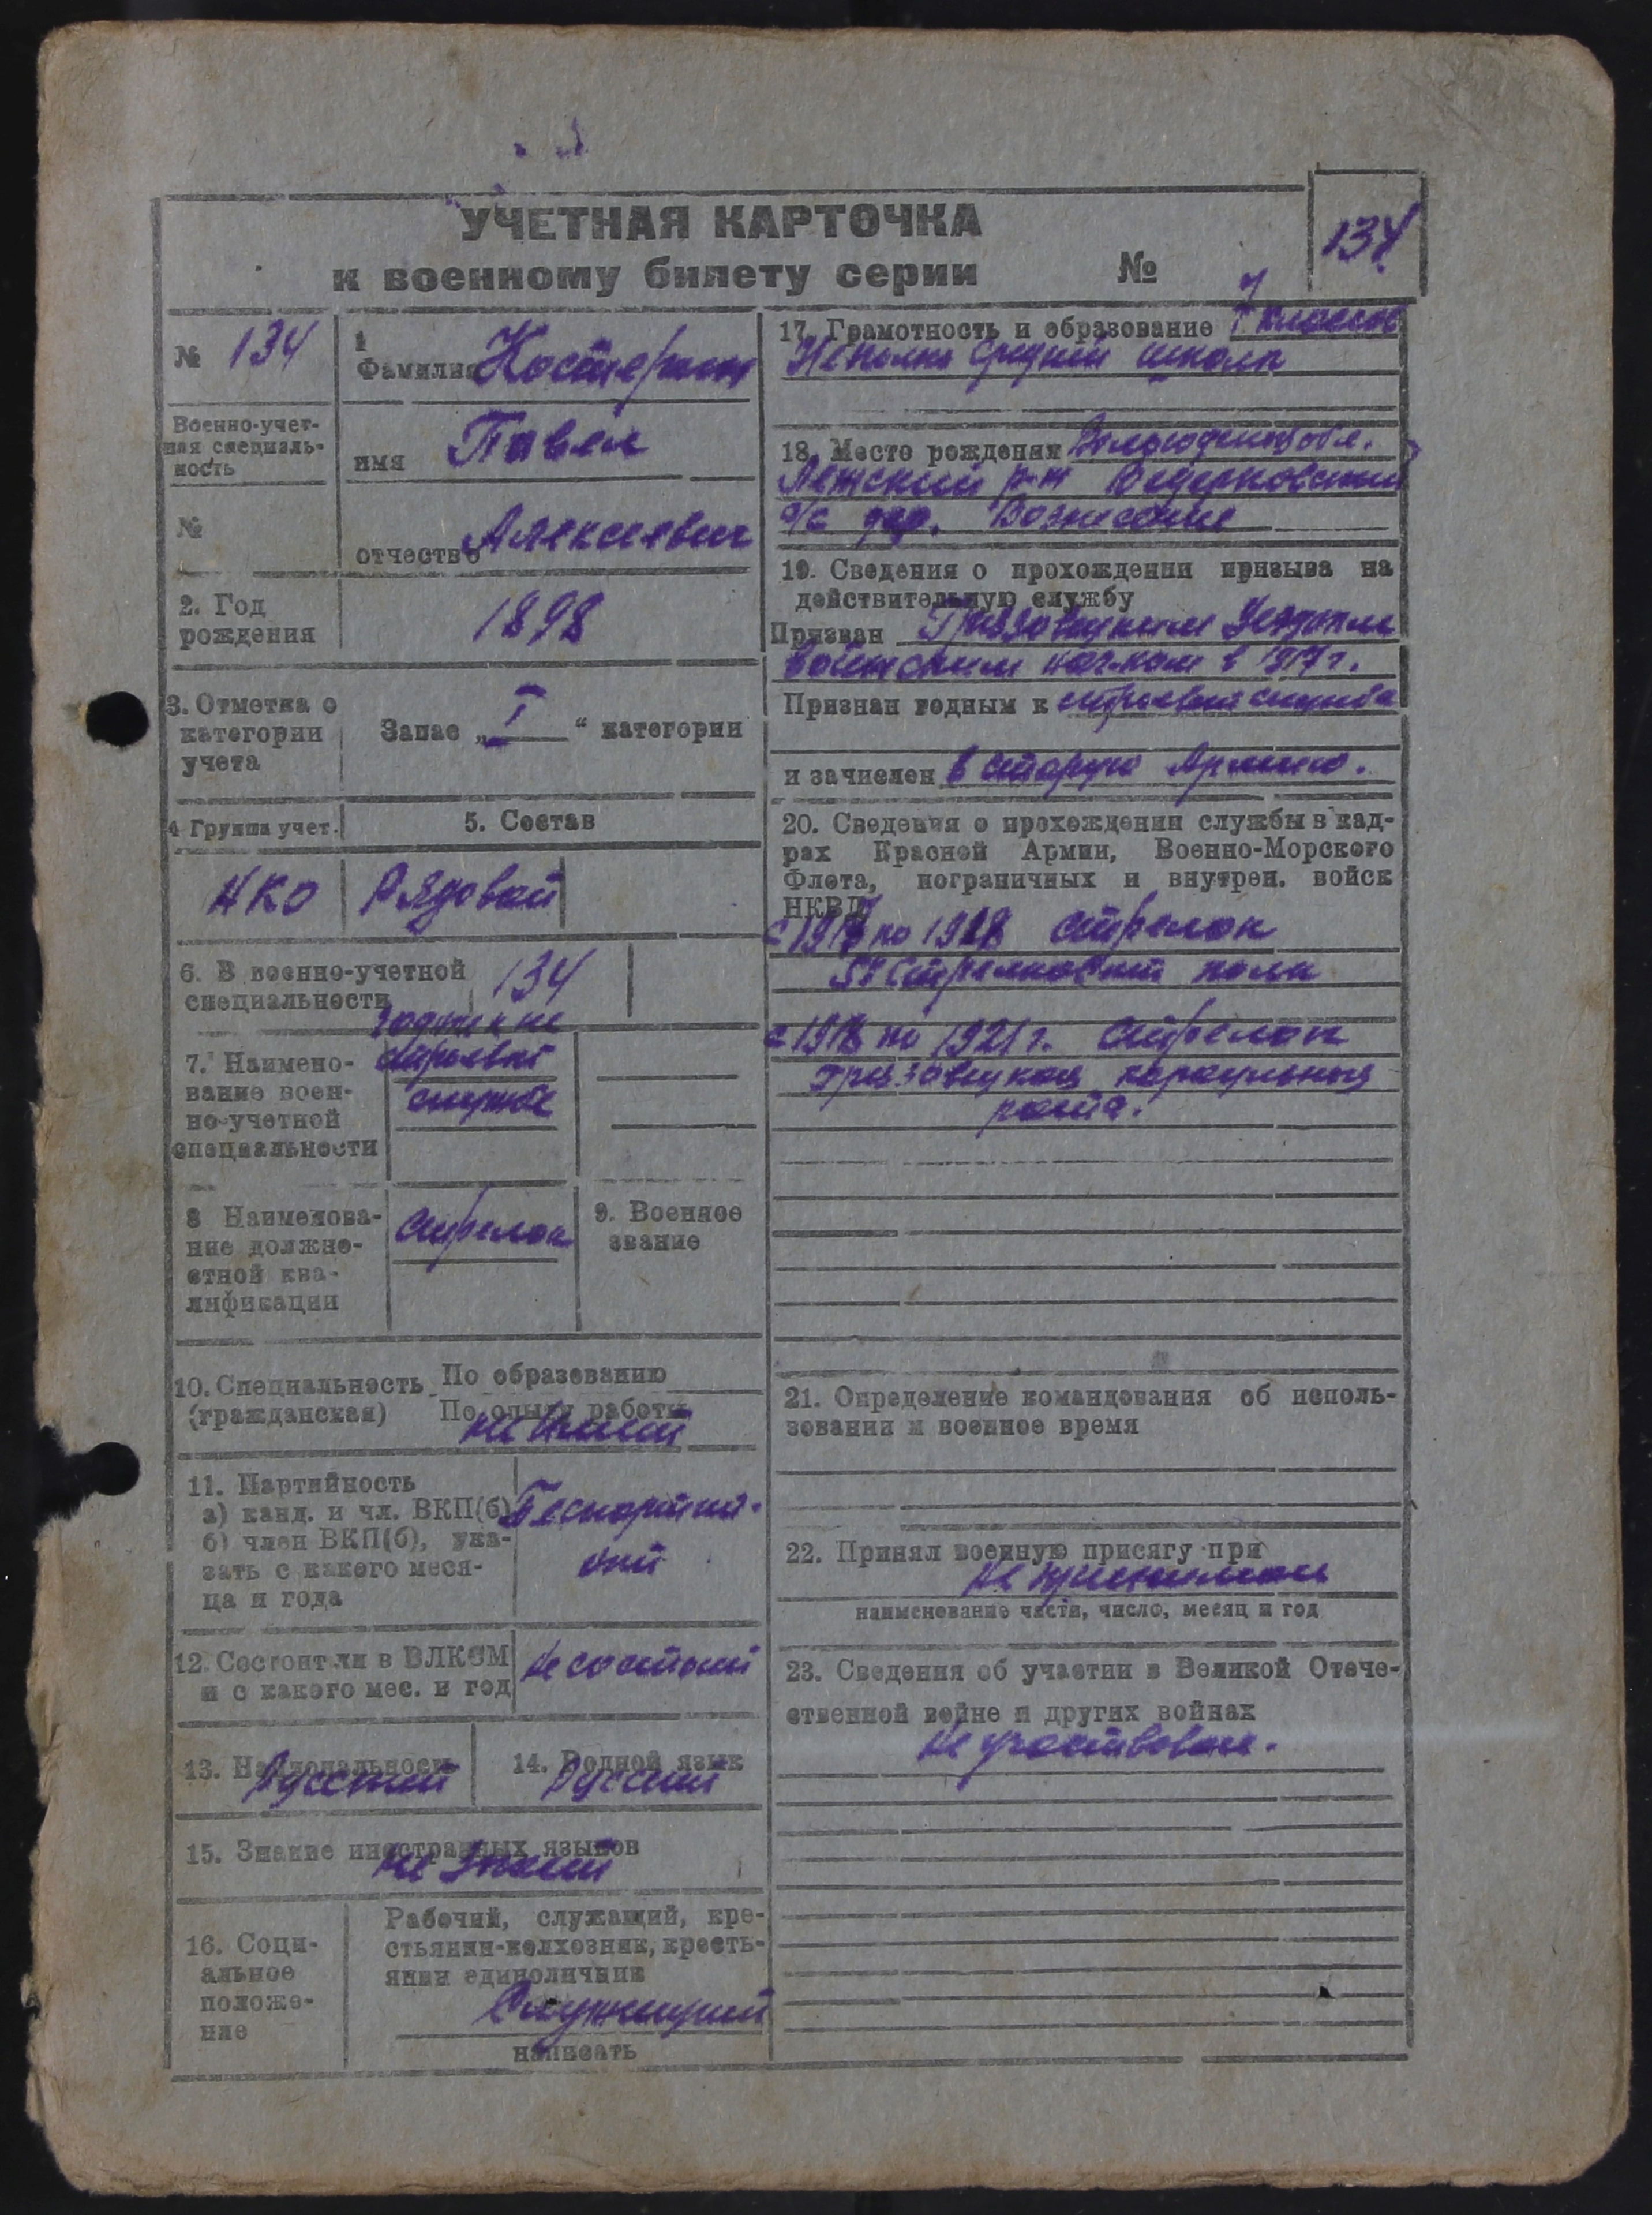 УЧЕТНАЯ КАРТОЧКА
к военному билету серии №
134
№ 134
Военно-учет-
ная специаль-
ность
№
1
Фамилия
имя Павел
отчество Алексеевич
2. Год
рождения
1898
3. Отметка о
категории
учета
Запас „I“ категории
4 Группа учет.
5. Состав
НКО
Рядовой
6. В военно-учетной
специальности
134
7. Наимено-
вание воен-
но-учетной
специальности
годные к не
строевой
службе
8 Наименова-
ние должно-
стной ква-
лификации
Стрелок
9. Военное
звание
10. Специальность
(гражданская)
По образованию
По опыту работы
не имеет
11. Партийность
а) канд. и чл. ВКП(б)
б) член ВКП(б), ука-
зать с какого меся-
ца и года
Беспартий-
ный
12. Состоит ли в ВЛКСМ
и с какого мес. и год
Не состоит
13. Национальность
Русский
14. Родной язык
Русский
15. Знание иностранных языков
не знает
16. Соци-
альное
положе-
ние
Рабочий, служащий, кре-
стьянин-колхозник, кресть-
янин единоличник
Служащий
написать
17. Грамотность и образование 7 классов
Неполн средней школы
18. Место рождения Вологодская обл.
р-н
с/с дер. Вознесение
19. Сведения о прохождении призыва на
действительную службу
Призван Грязовецким Уездным
воинским нач-ком в 1917 г.
Признан годным к строевой службе
и зачислен в старую Армию.
20. Сведения о прохождении службы в кад-
рах Красной Армии, Военно-Морского
Флота, пограничных и внутрен. войск
НКВД
с 1917 по 1918 Стрелок
Стрелковый полк
с 1918 по 1921 г. Стрелок
Грязовецкая караульная
рота.
21. Определение командования об исполь-
зовании и военное время
22. Принял военную присягу при
не принимал
наименование части, число, месяц и год
23. Сведения об участии в Великой Отече-
ственной войне и других войнах
Не участвовал.